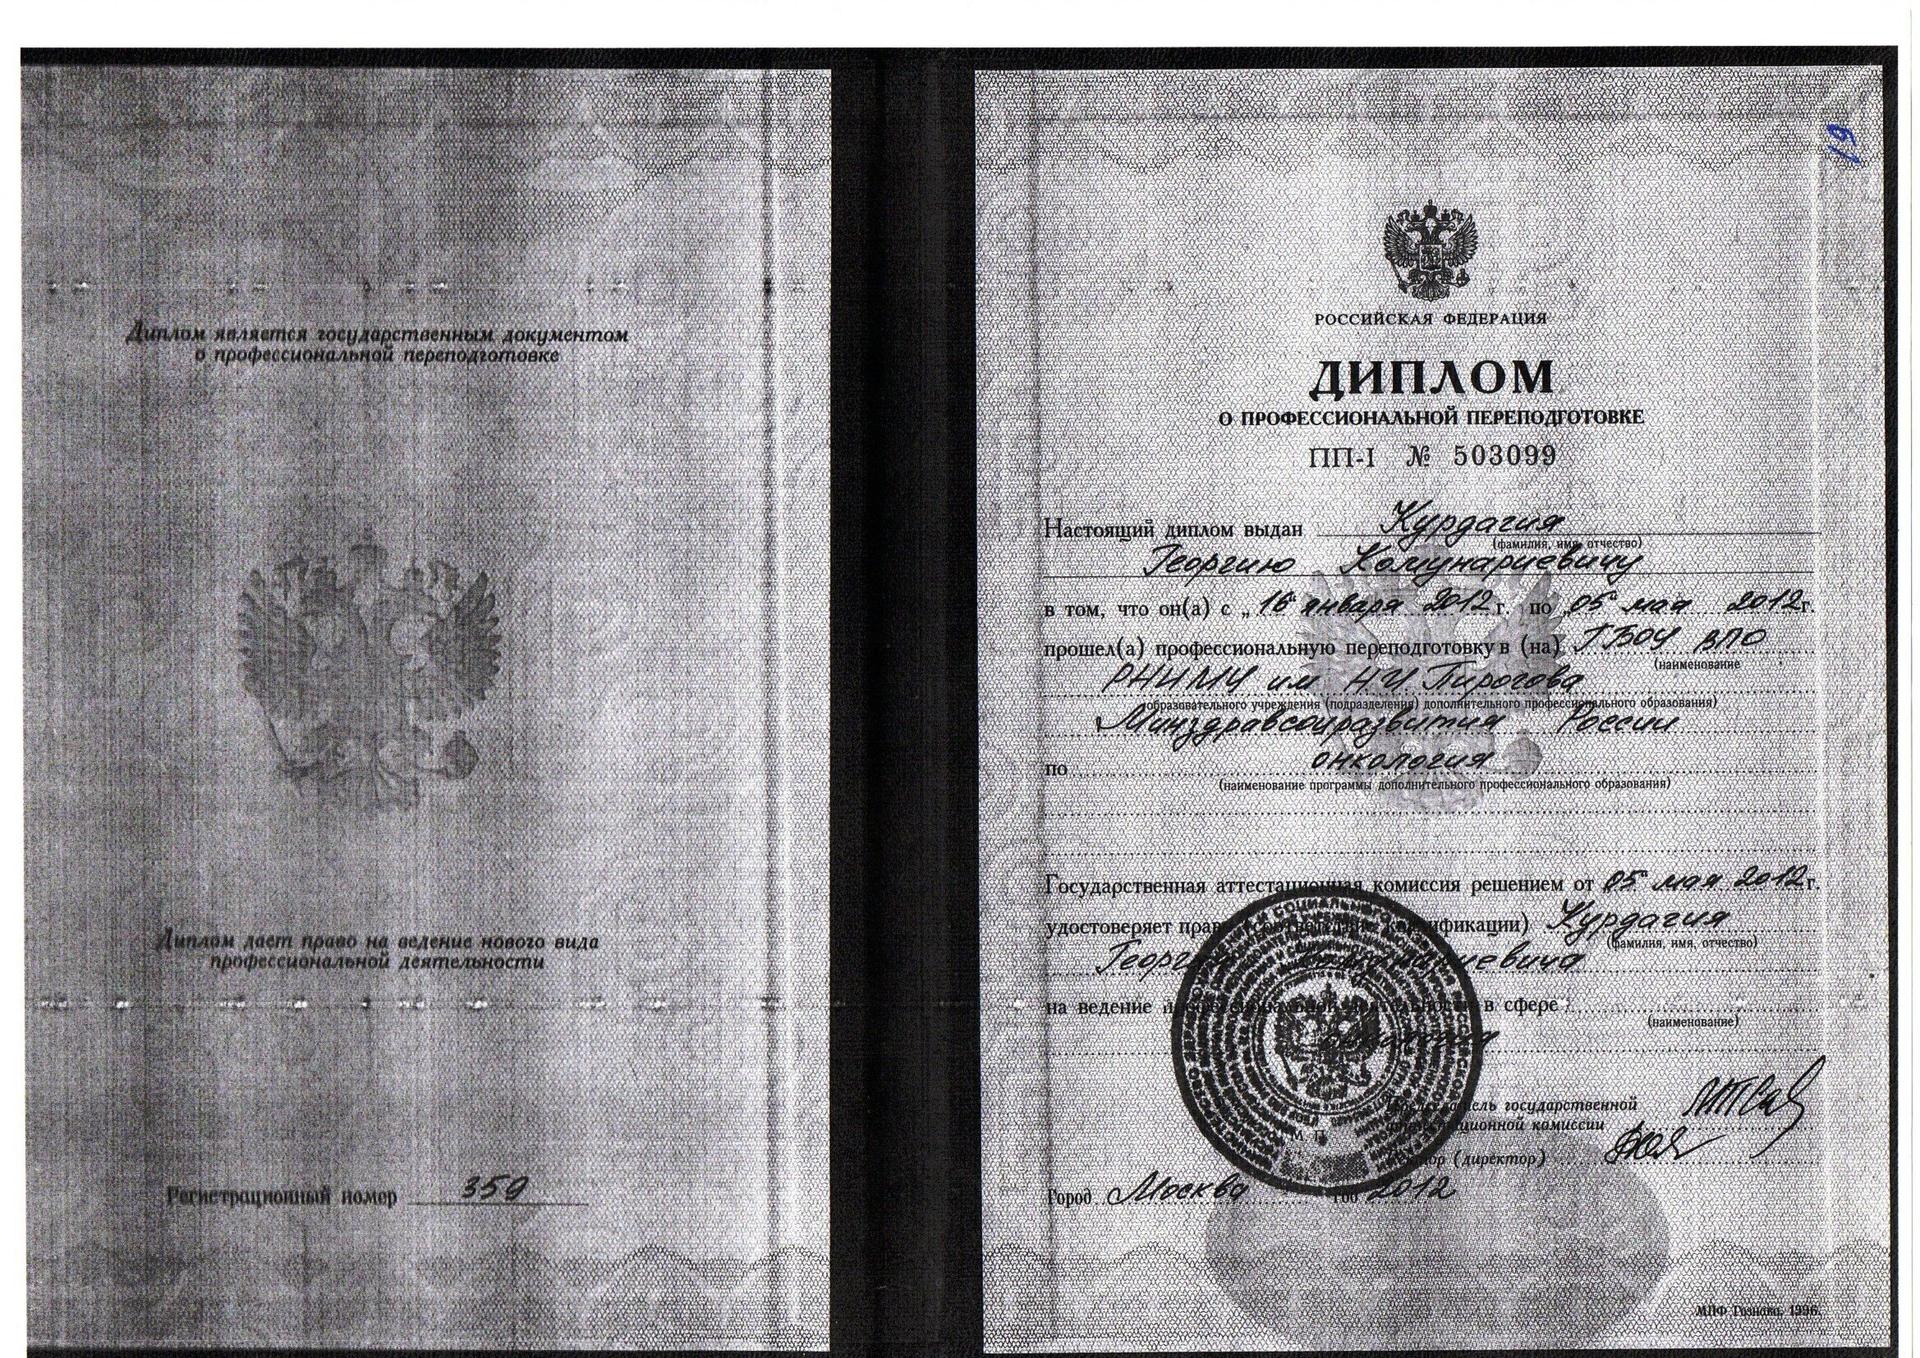 Диплом является государственным документом
о профессиональной переподготовке
Диплом дает право на ведение нового вида
профессиональной деятельности
Регистрационный номер 359
19
РОССИЙСКАЯ ФЕДЕРАЦИЯ
ДИПЛОМ
О ПРОФЕССИОНАЛЬНОЙ ПЕРЕПОДГОТОВКЕ
ПП-I № 503099
Настоящий диплом выдан Курдагия
(фамилия, имя, отчество)
Георгию Комунариевичу
в том, что он(а) с „16" января 2012 г. по „05" мая 2012 г.
прошел(а) профессиональную переподготовку в (на) ГБОУ ВПО
(наименование
РНИМУ им Н.И. Пирогова
образовательного учреждения (подразделения) дополнительного профессионального образования)
Минздравсоцразвития России
по онкология
(наименование программы дополнительного профессионального образования)
Государственная аттестационная комиссия решением от 05" мая 2012 г.
удостоверяет право (соответствие квалификации) Курдагия
(фамилия, имя, отчество)
Георгия Комунариевича
на ведение профессиональной деятельности в сфере
(наименование)
онкология
Председатель государственной
аттестационной комиссии
Ректор (директор)
М П
Город Москва год 2012
МПФ Гознака. 1996.